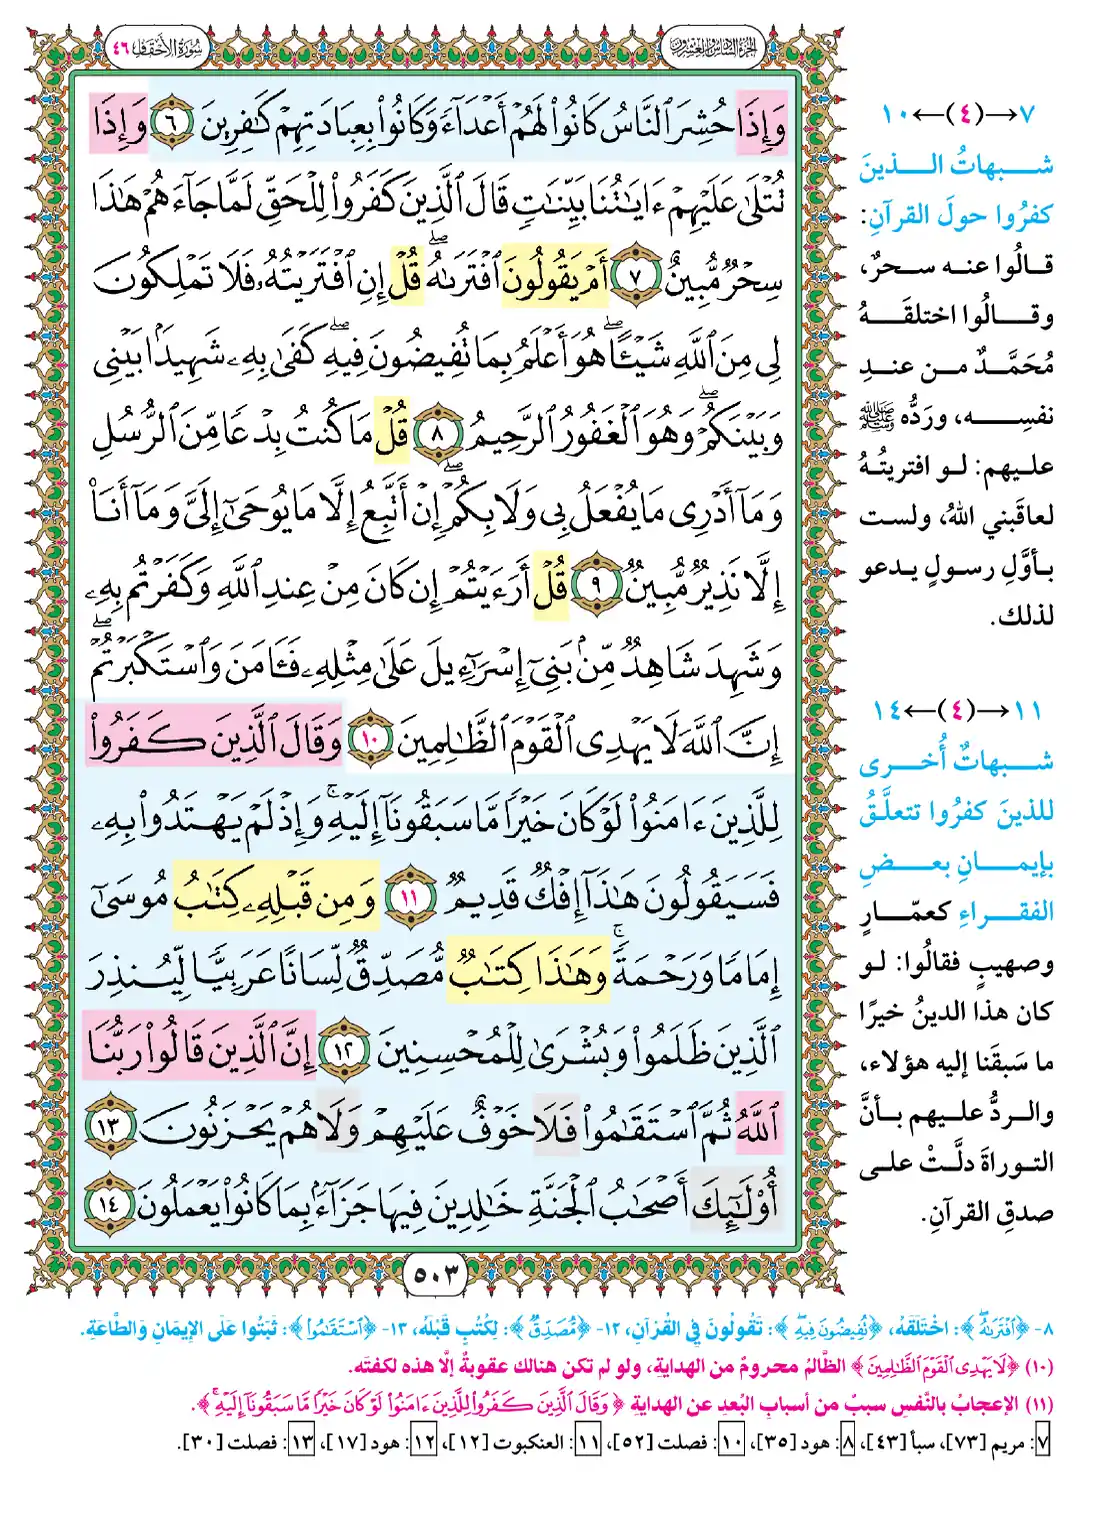 الجزء السادس والعشرون
سورة الأحقاف ٤٦
وَإِذَا حُشِرَ ٱلنَّاسُ كَانُوا۟ لَهُمْ أَعْدَآءً وَكَانُوا۟ بِعِبَادَتِهِمْ كَـٰفِرِينَ ٦ وَإِذَا
تُتْلَىٰ عَلَيْهِمْ ءَايَـٰتُنَا بَيِّنَـٰتٍ قَالَ ٱلَّذِينَ كَفَرُوا۟ لِلْحَقِّ لَمَّا جَآءَهُمْ هَـٰذَا
سِحْرٌ مُّبِينٌ ٧ أَمْ يَقُولُونَ ٱفْتَرَىٰهُ ۖ قُلْ إِنِ ٱفْتَرَيْتُهُۥ فَلَا تَمْلِكُونَ
لِى مِنَ ٱللَّهِ شَيْـًٔا ۖ هُوَ أَعْلَمُ بِمَا تُفِيضُونَ فِيهِ ۖ كَفَىٰ بِهِۦ شَهِيدًۢا بَيْنِى
وَبَيْنَكُمْ ۖ وَهُوَ ٱلْغَفُورُ ٱلرَّحِيمُ ٨ قُلْ مَا كُنتُ بِدْعًا مِّنَ ٱلرُّسُلِ
وَمَآ أَدْرِى مَا يُفْعَلُ بِى وَلَا بِكُمْ ۖ إِنْ أَتَّبِعُ إِلَّا مَا يُوحَىٰٓ إِلَىَّ وَمَآ أَنَا۠
إِلَّا نَذِيرٌ مُّبِينٌ ٩ قُلْ أَرَءَيْتُمْ إِن كَانَ مِنْ عِندِ ٱللَّهِ وَكَفَرْتُم بِهِۦ
وَشَهِدَ شَاهِدٌ مِّنۢ بَنِىٓ إِسْرَٰٓءِيلَ عَلَىٰ مِثْلِهِۦ فَـَٔامَنَ وَٱسْتَكْبَرْتُمْ ۖ
إِنَّ ٱللَّهَ لَا يَهْدِى ٱلْقَوْمَ ٱلظَّـٰلِمِينَ ١٠ وَقَالَ ٱلَّذِينَ كَفَرُوا۟
لِلَّذِينَ ءَامَنُوا۟ لَوْ كَانَ خَيْرًا مَّا سَبَقُونَآ إِلَيْهِ ۚ وَإِذْ لَمْ يَهْتَدُوا۟ بِهِۦ
فَسَيَقُولُونَ هَـٰذَآ إِفْكٌ قَدِيمٌ ١١ وَمِن قَبْلِهِۦ كِتَـٰبُ مُوسَىٰٓ
إِمَامًا وَرَحْمَةً ۚ وَهَـٰذَا كِتَـٰبٌ مُّصَدِّقٌ لِّسَانًا عَرَبِيًّا لِّيُنذِرَ
ٱلَّذِينَ ظَلَمُوا۟ وَبُشْرَىٰ لِلْمُحْسِنِينَ ١٢ إِنَّ ٱلَّذِينَ قَالُوا۟ رَبُّنَا
ٱللَّهُ ثُمَّ ٱسْتَقَـٰمُوا۟ فَلَا خَوْفٌ عَلَيْهِمْ وَلَا هُمْ يَحْزَنُونَ ١٣
أُو۟لَـٰٓئِكَ أَصْحَـٰبُ ٱلْجَنَّةِ خَـٰلِدِينَ فِيهَا جَزَآءًۢ بِمَا كَانُوا۟ يَعْمَلُونَ ١٤
٥٠٣
٧→(٤)←١٠
شبهاتُ الذينَ
كفرُوا حولَ القرآنِ:
قالُوا عنه سحرٌ،
وقالُوا اختلقَهُ
مُحَمَّدٌ من عندِ
نفسِه، ورَدُّه ﷺ
عليهم: لو افتريتُهُ
لعاقَبني اللهُ، ولست
بأوَّلِ رسولٍ يدعو
لذلك.
١١→(٤)←١٤
شبهاتٌ أُخرى
للذينَ كفرُوا تتعلَّقُ
بإيمانِ بعضِ
الفقراءِ كعمّارٍ
وصهيبٍ فقالُوا: لو
كان هذا الدينُ خيرًا
ما سَبقَنا إليه هؤلاء،
والردُّ عليهم بأنَّ
التوراةَ دلَّتْ على
صدقِ القرآنِ.
٨- ﴿ٱفْتَرَىٰهُ ۖ﴾: اخْتَلَقَهُ، ﴿تُفِيضُونَ فِيهِ ۖ﴾: تَقُولُونَ فِي القُرْآنِ، ١٢- ﴿مُّصَدِّقٌ﴾: لِكُتُبٍ قَبْلَهُ، ١٣- ﴿ٱسْتَقَـٰمُوا۟﴾: ثَبَتُوا عَلَى الإِيمَانِ وَالطَّاعَةِ.
(١٠) ﴿لَا يَهْدِى ٱلْقَوْمَ ٱلظَّـٰلِمِينَ﴾ الظَّالمُ محرومٌ من الهدايةِ، ولو لم تكن هنالك عقوبةٌ إلَّا هذه لكفتَه.
(١١) الإعجابُ بالنَّفسِ سببٌ من أسبابِ البُعدِ عن الهدايةِ ﴿وَقَالَ ٱلَّذِينَ كَفَرُوا۟ لِلَّذِينَ ءَامَنُوا۟ لَوْ كَانَ خَيْرًا مَّا سَبَقُونَآ إِلَيْهِ ۚ﴾.
٧: مريم [٧٣]، سبأ [٤٣]، ٨: هود [٣٥]، ١٠: فصلت [٥٢]، ١١: العنكبوت [١٢]، ١٢: هود [١٧]، ١٣: فصلت [٣٠].